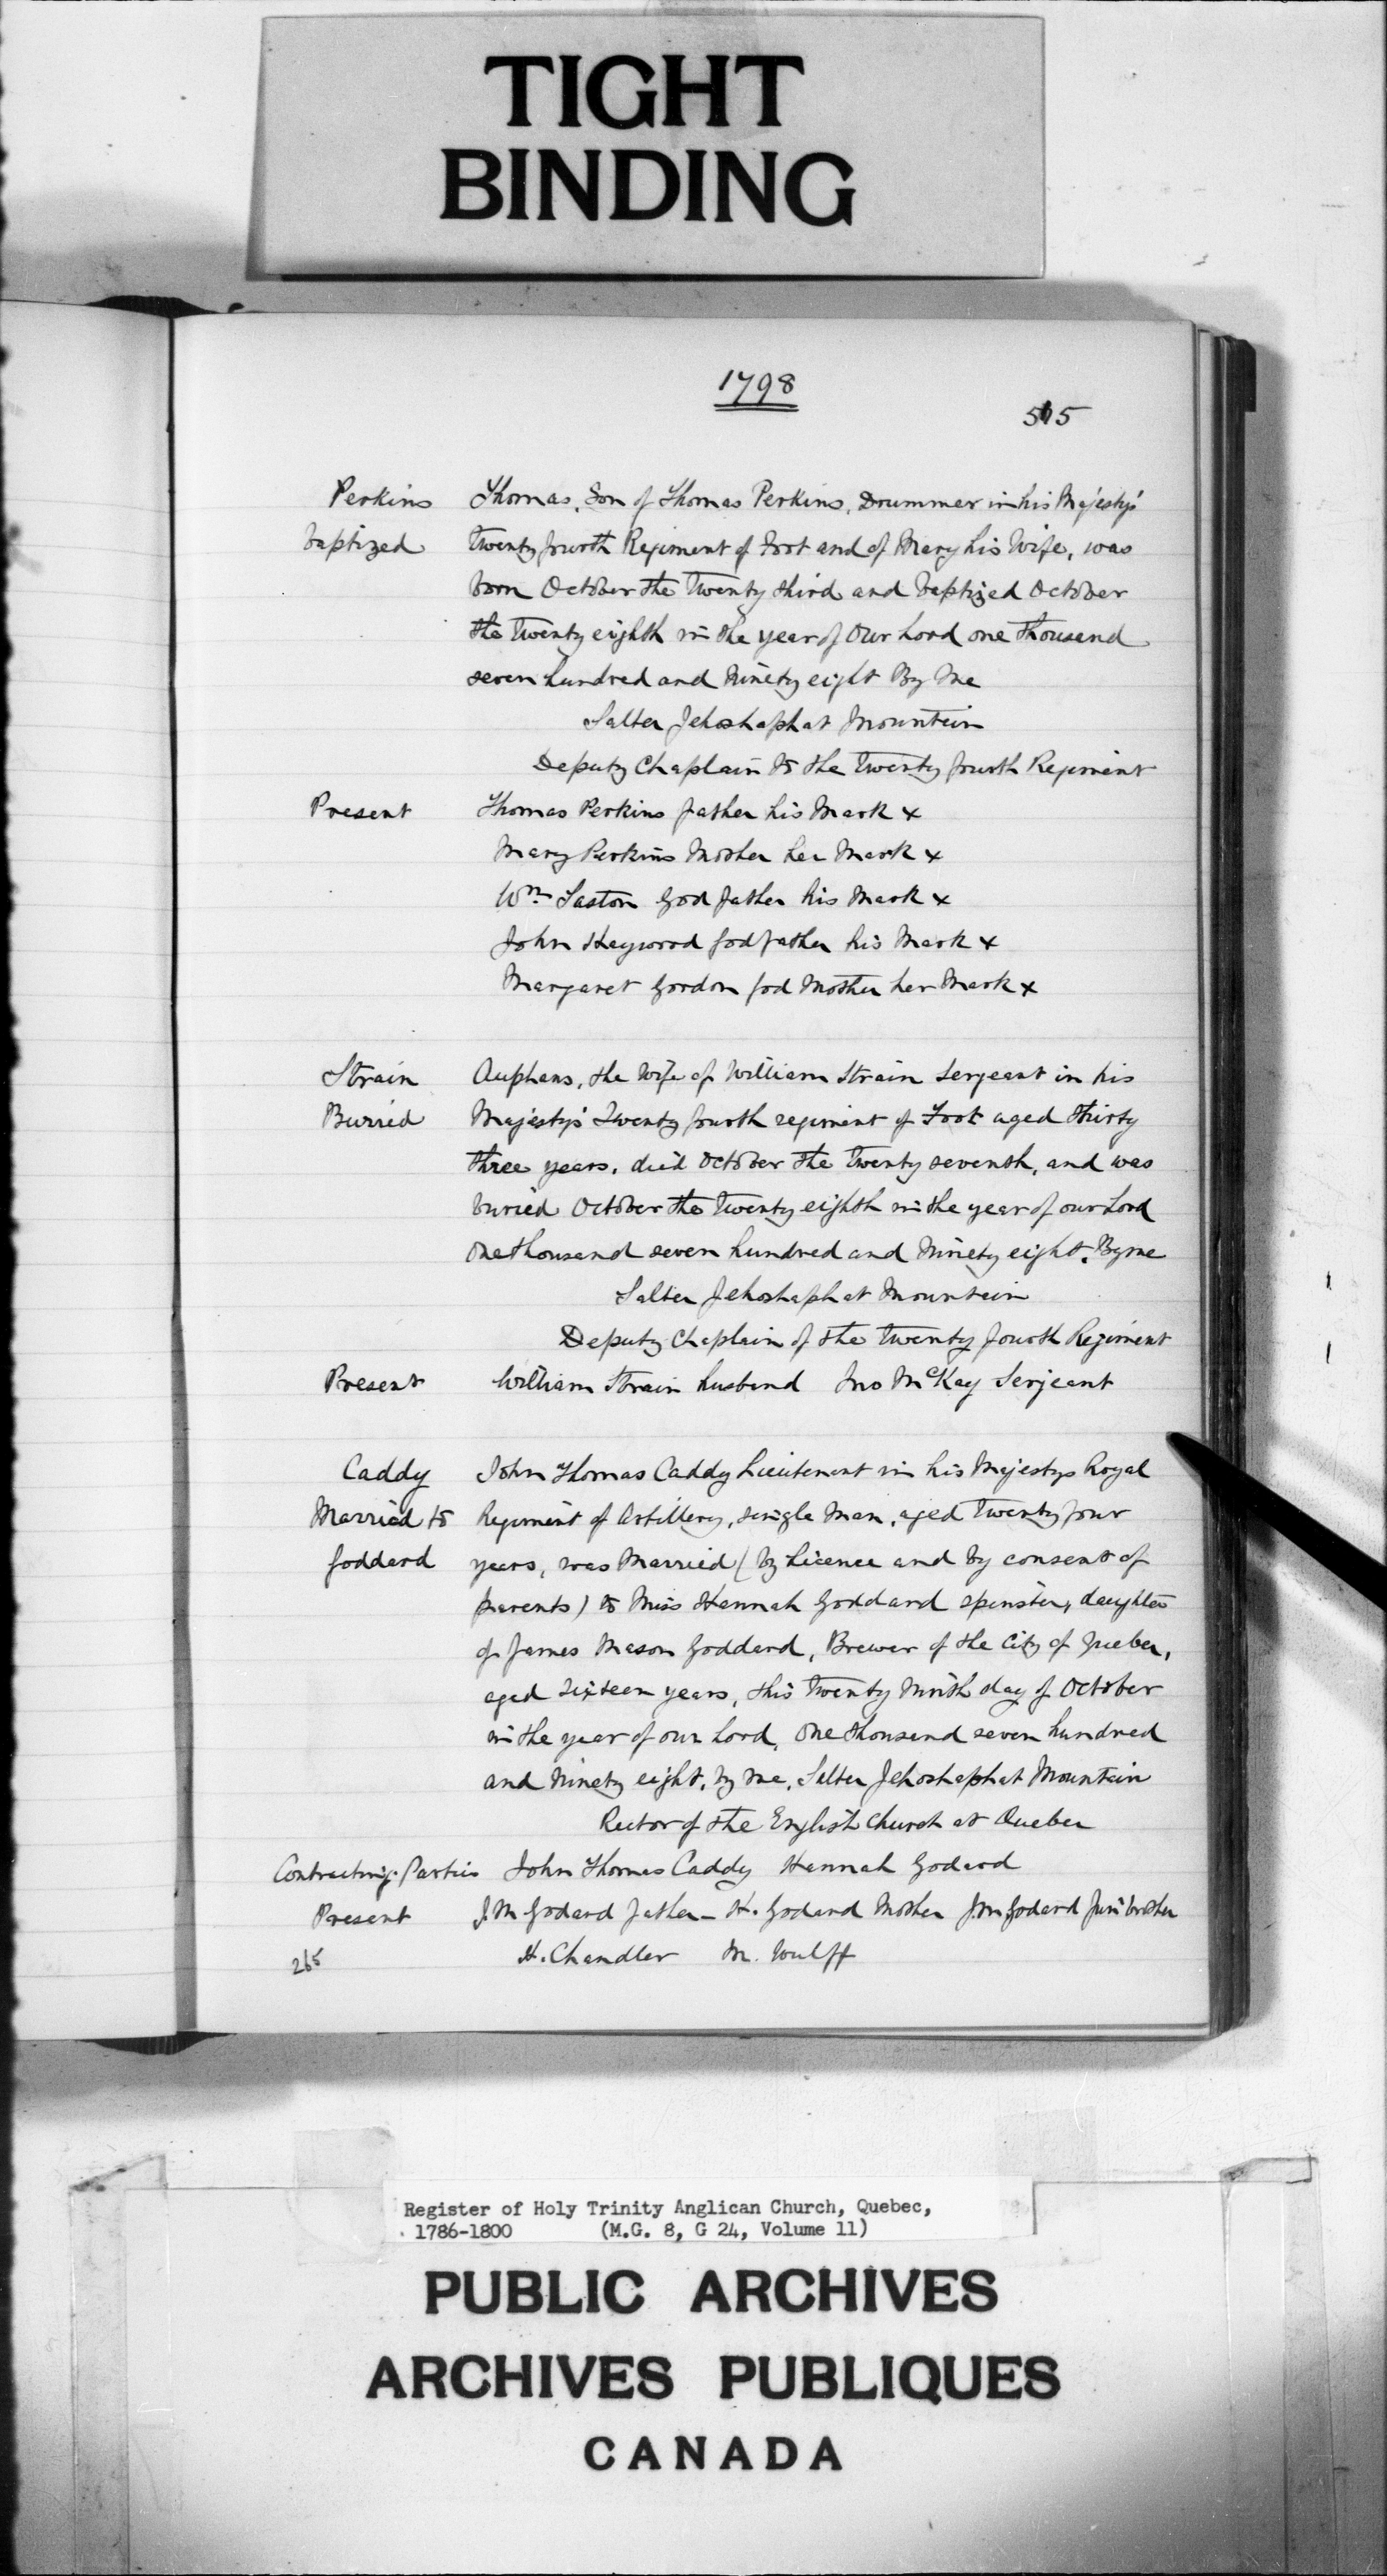 TIGHT
BINDING
1798
515
Perkins Thomas, Son of Thomas Perkins, Drummer in his Majestys'
baptized twenty fourth Regiment of Foot and of Mary his Wife, was
born October the twenty third and baptized October
the twenty eighth in the year of Our Lord one thousand
seven hundred and ninety eight By Me
Salter Jehoshaphat Mountain
Deputy Chaplain to the twenty fourth Regiment
Present Thomas Perkins father his Mark x
Mary Perkins Mother her Mark x
Wm. Saston God father his Mark x
John Heywood God father his Mark x
Margaret Gordon God Mother her Mark x
Strain Auphans, the Wife of William Strain Sergeant in his
Burried Majestys' Twenty fourth regiment of Foot aged thirty
three years, died October the twenty seventh, and was
buried October the twenty eighth in the year of our Lord
One thousand seven hundred and Ninety eight. By me
Salter Jehoshaphat Mountain
Deputy Chaplain of the twenty fourth Regiment
Present William Strain husband Jno McKay Serjeant
Caddy John Thomas Caddy Lieutenant in his Majestys Royal
Married to Regiment of Artillery, single Man, aged twenty four
Goddard years, was Married (by Licence and by consent of
parents) to Miss Hannah Goddard spinster, daughter
of James Mason Goddard, Brewer of the City of Quebec,
aged sixteen years, this twenty ninth day of October
in the year of our Lord, One thousand seven hundred
and Ninety eight, by me, Salter Jehoshaphat Mountain
Rector of the English Church at Quebec
Contracting Parties John Thomas Caddy Hannah Godard
Present J.M Godard father - H. Godard Mother J.M Godard Junr brother
265 H. Chandler M. Wulff
Register of Holy Trinity Anglican Church, Quebec,
1786-1800 (M.G. 8, G 24, Volume 11)
PUBLIC ARCHIVES
ARCHIVES PUBLIQUES
CANADA